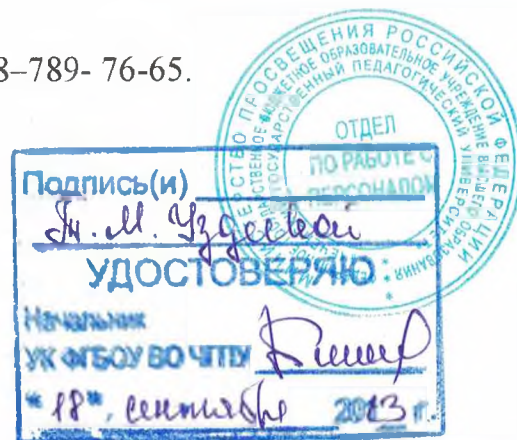 8–789- 76-65.
МИНИСТЕРСТВО ПРОСВЕЩЕНИЯ РОССИЙСКОЙ ФЕДЕРАЦИИ
БЮДЖЕТНОЕ ОБРАЗОВАТЕЛЬНОЕ УЧРЕЖДЕНИЕ ВЫСШЕГО ОБРАЗОВАНИЯ
ГОСУДАРСТВЕННЫЙ ПЕДАГОГИЧЕСКИЙ УНИВЕРСИТЕТ
ОТДЕЛ
ПО РАБОТЕ С
ПЕРСОНАЛОМ
Подпись(и)
М. Уздеевой
УДОСТОВЕРЯЮ:
Начальник
УК ФГБОУ ВО ЧГПУ
"18", сентября 2023 г.